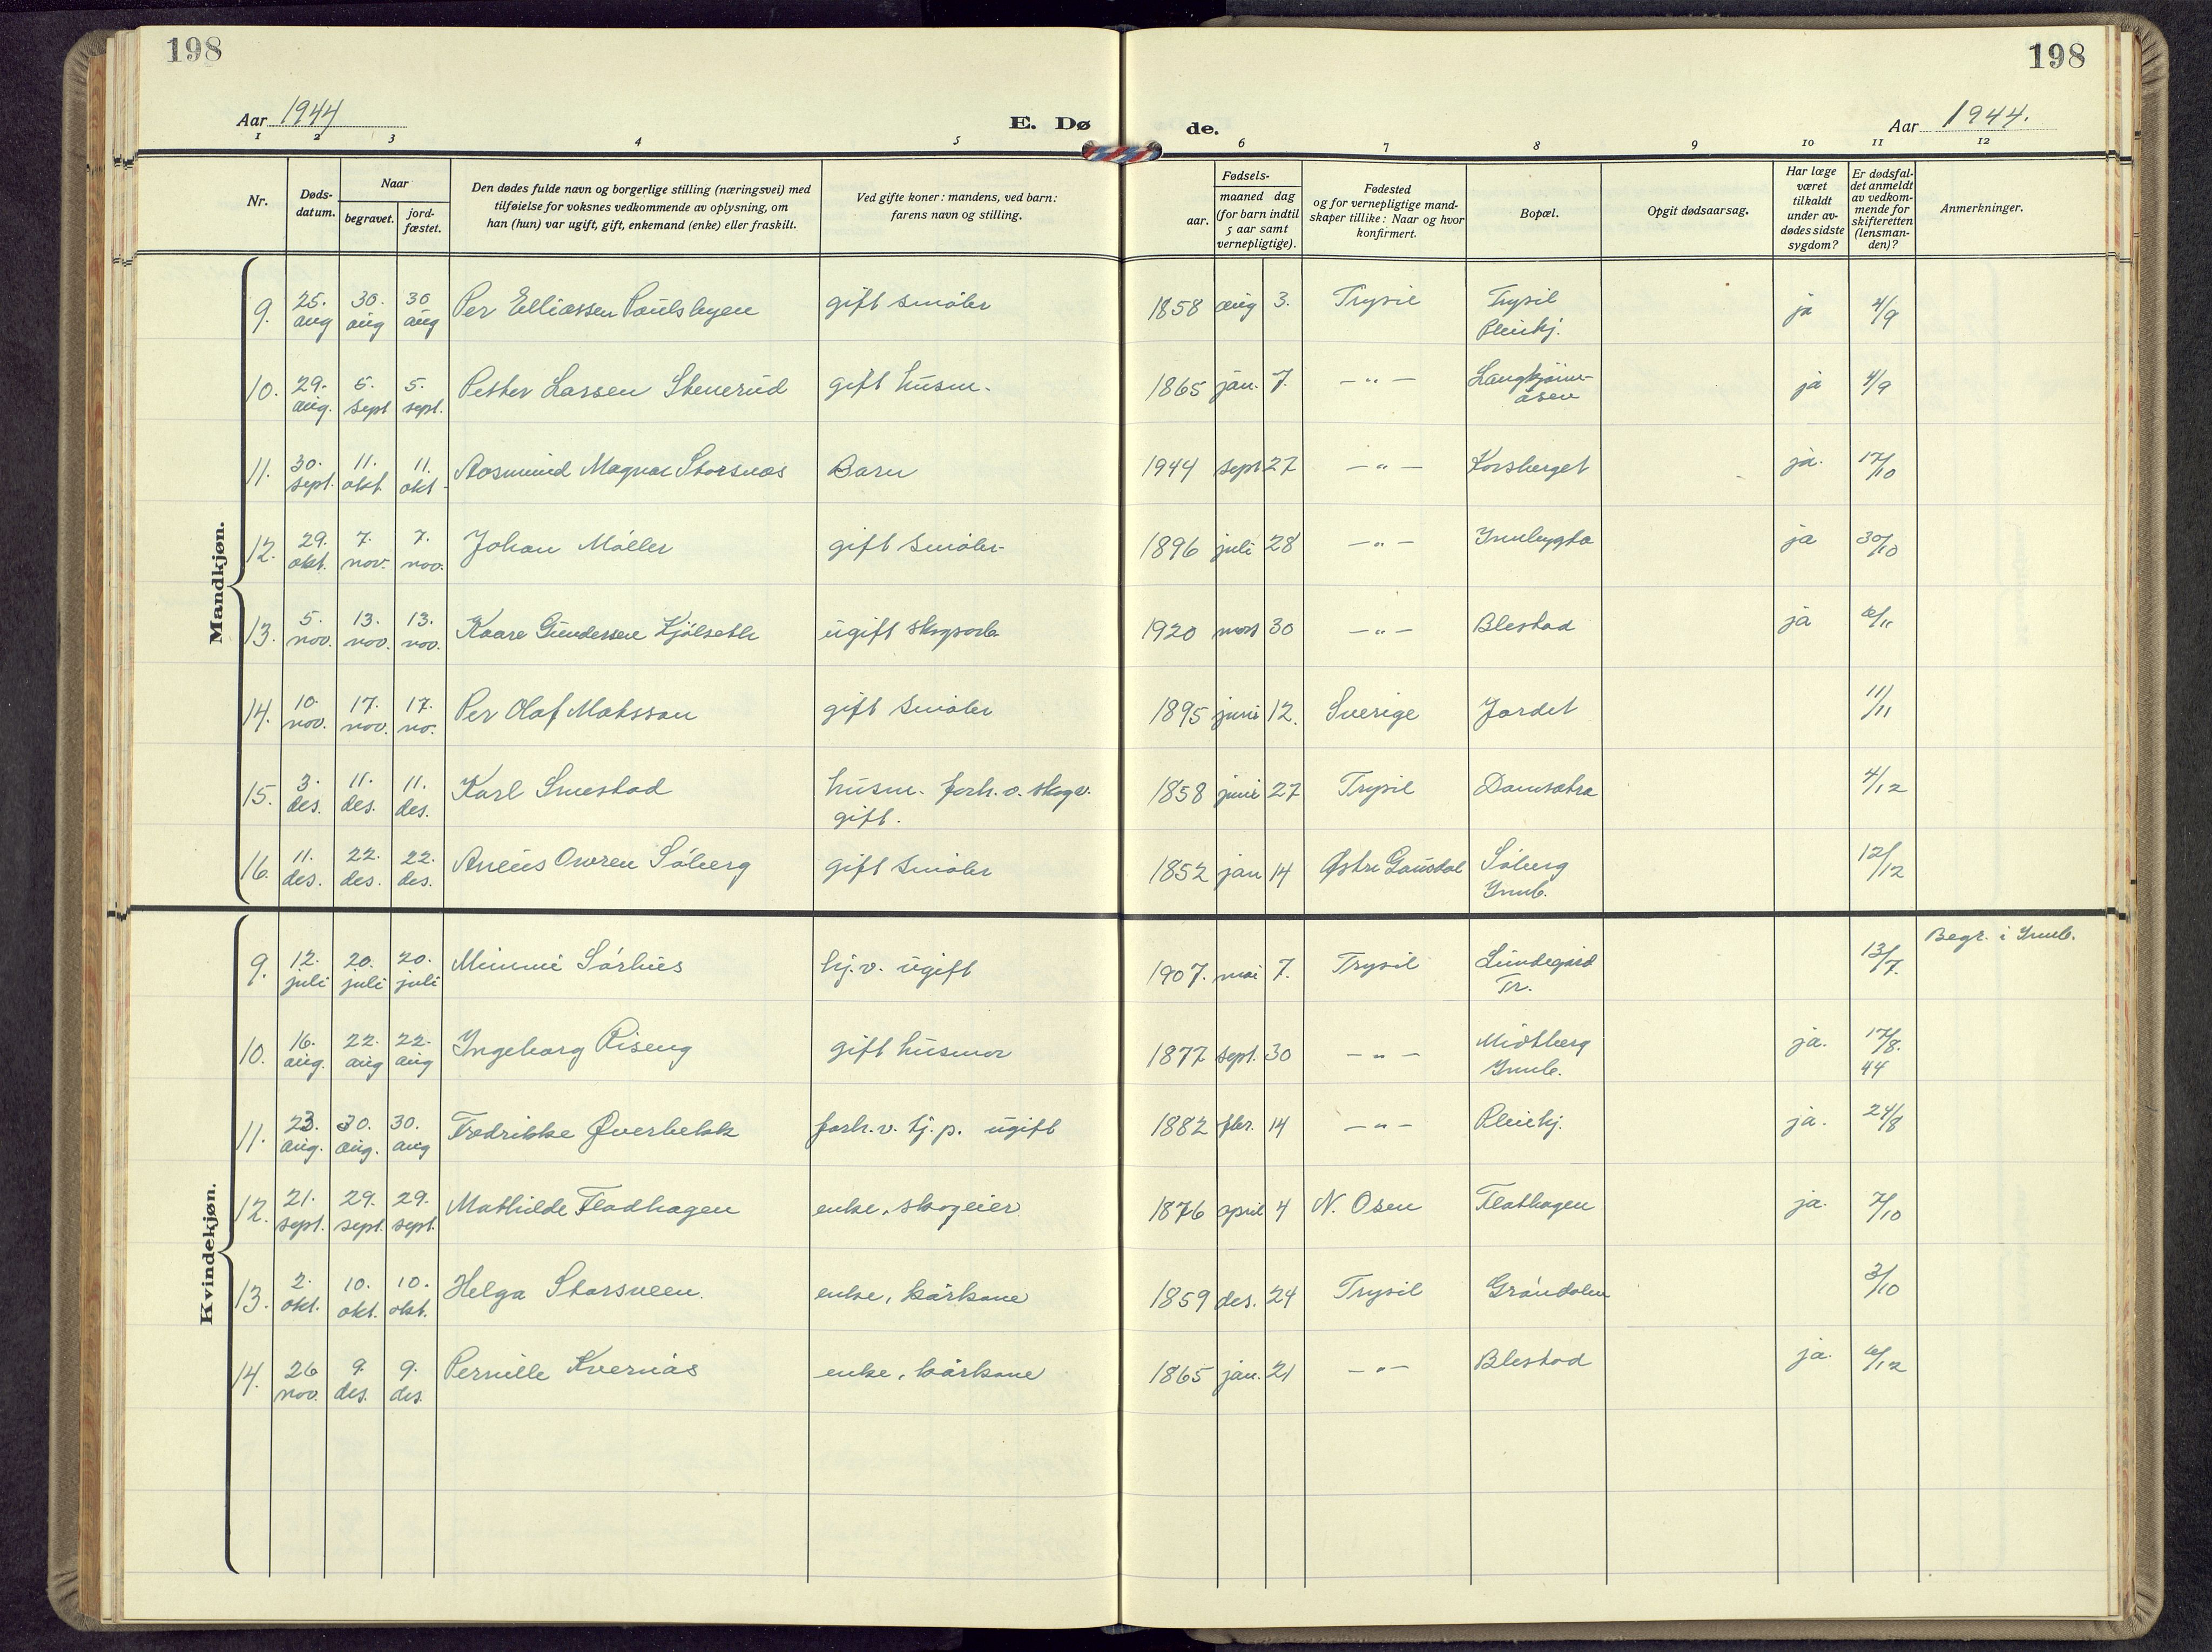 198
198
Aar 1944
E. Dø
de.
Aar 1944.
1 2 3 4 5 6 7 8 9 10 11 12
Nr.
Døds-
datum.
Naar
begravet.
jord-
fæstet.
Den dødes fulde navn og borgerlige stilling (næringsvei) med
tilføielse for voksnes vedkommende av oplysning, om
han (hun) var ugift, gift, enkemand (enke) eller fraskilt.
Ved gifte koner: mandens, ved barn:
farens navn og stilling.
Fødsels-
aar.
maaned dag
(for barn indtil
5 aar samt
vernepligtige).
Fødested
og for vernepligtige mand-
skaper tillike: Naar og hvor
konfirmert.
Bopæl.
Opgit dødsaarsag.
Har læge
været
tilkaldt
under av-
dødes sidste
sygdom?
Er dødsfal-
det anmeldt
av vedkom-
mende for
skifteretten
(lensman-
den)?
Anmerkninger.
Mandkjøn.
9. 25. aug 30. aug 30 aug Per Elliassen Paulshagen gift småbr 1858 aug 3. Trysil Trysil Pleiehj. ja 4/9
10. 29. aug. 5. sept 5. sept. Petter Larsen Stenerud gift husm. 1865 jan. 7. —〃— Langkjønn- åsen ja 4/9
11. 30. sept. 11. okt. 11. okt. Aasmund Magnar Storsnæs Barn 1944 sept 27 —〃— Korsberget ja. 17/10
12. 29. okt. 7. nov. 7. nov. Johan Möller gift småbr. 1896 juli 28 —〃— Innbygda ja 30/10
13. 5. nov. 13. nov. 13. nov. Kaare Gundersen Kjølseth ugift skogsarb 1920 mars 30 —〃— Blestad ja 6/11
14. 10. nov. 17. nov. 17. no. Per Olaf Matsson gift småbr 1895 juni 12. Sverige Jordet 11/11
15. 3. des. 11. des. 11. des. Karl Smestad husm. forh. v. skoge. gift. 1858 juni 27 Trysil Damsætra 4/12
16. 11. des. 22. des. 22. des. Aneus Owren Søberg gift småbr 1852 jan 14 Østre Gausdal Søberg Innb. 12/12
Kvindekjøn.
9. 12. juli 20. juli 20. juli Minmi Sørhus hj.v. ugift 1907. mai 7. Trysil Lundegård Tr. 13/7. Begr. i Innb.
10. 16. aug. 22. aug 22. aug Ingeborg Riseng gift husmor 1877 sept. 30 —〃— Midtberg Innb. ja. 17/8. 44
11. 23. aug. 30. aug. 30. aug Fredrikke Øverbekk forh. v. tj. p. ugift 1882 febr. 14 —〃— Pleiehj. ja. 24/8
12. 21. sept. 29. sept. 29. sept. Mathilde Fladhagen enke, skogeier 1876 april 4 N. Osen Flathagen ja. 7/10
13. 2. okt. 10. okt. 10. okt. Helga Storsveen. enke, kårkone 1859 des. 24 Trysil Grøndalen 3/10
14. 26 nov. 9. des. 9. des. Pernille Kvernås enke, kårkone 1865 jan. 21 —〃— Blestad ja. 6/12